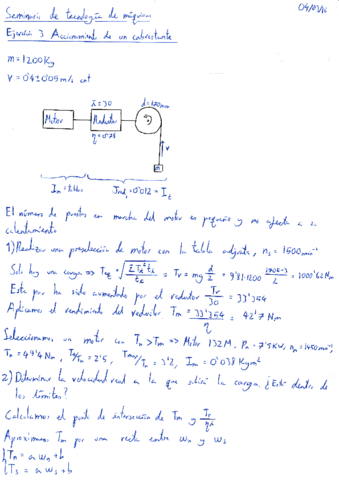 04/03/16
Seminario de tecnología de máquinas
Ejercicio 3 Accionamiento de un cabrestante
m = 1200 Kg
v = 0'4 ± 0'05 m/s cnt
i = 30
d = 170 mm
Motor
Reductor
η = 0'78
v
m
Im = tablas
Jred = 0'012 = It
El número de puestas en marcha del motor es pequeño y no afecta a su
calentamiento
1) Realizar una preselección de motor con la tabla adjunta, ns = 1500 min⁻¹
Solo hay una carga => Teq = √(Σ Ti² ti / ti) = Tr = mg d/2 = 9'81·1200 = 1000'62 Nm
Este par ha sido aumentado por el reductor Tr/30 = 33'354
Aplicamos el rendimiento del reductor Tm = 33'354/η = 42'7 Nm
Seleccionamos un motor con Tn > Tm => Motor 132M, Pn = 7'5 KW, nn = 1450 min⁻¹,
Tn = 49'4 Nm, Ta/Tn = 2'5, Tmax/Tn = 3'2, Im = 0'038 Kgm²
2) Determinar la velocidad real a la que subirá la carga. ¿Está dentro de
los límites?
Calculamos el punto de intersección de Tm y Tr/ηi
Aproximamos Tm por una recta entre wn y ws
Tn = a wn + b
Ts = a ws + b